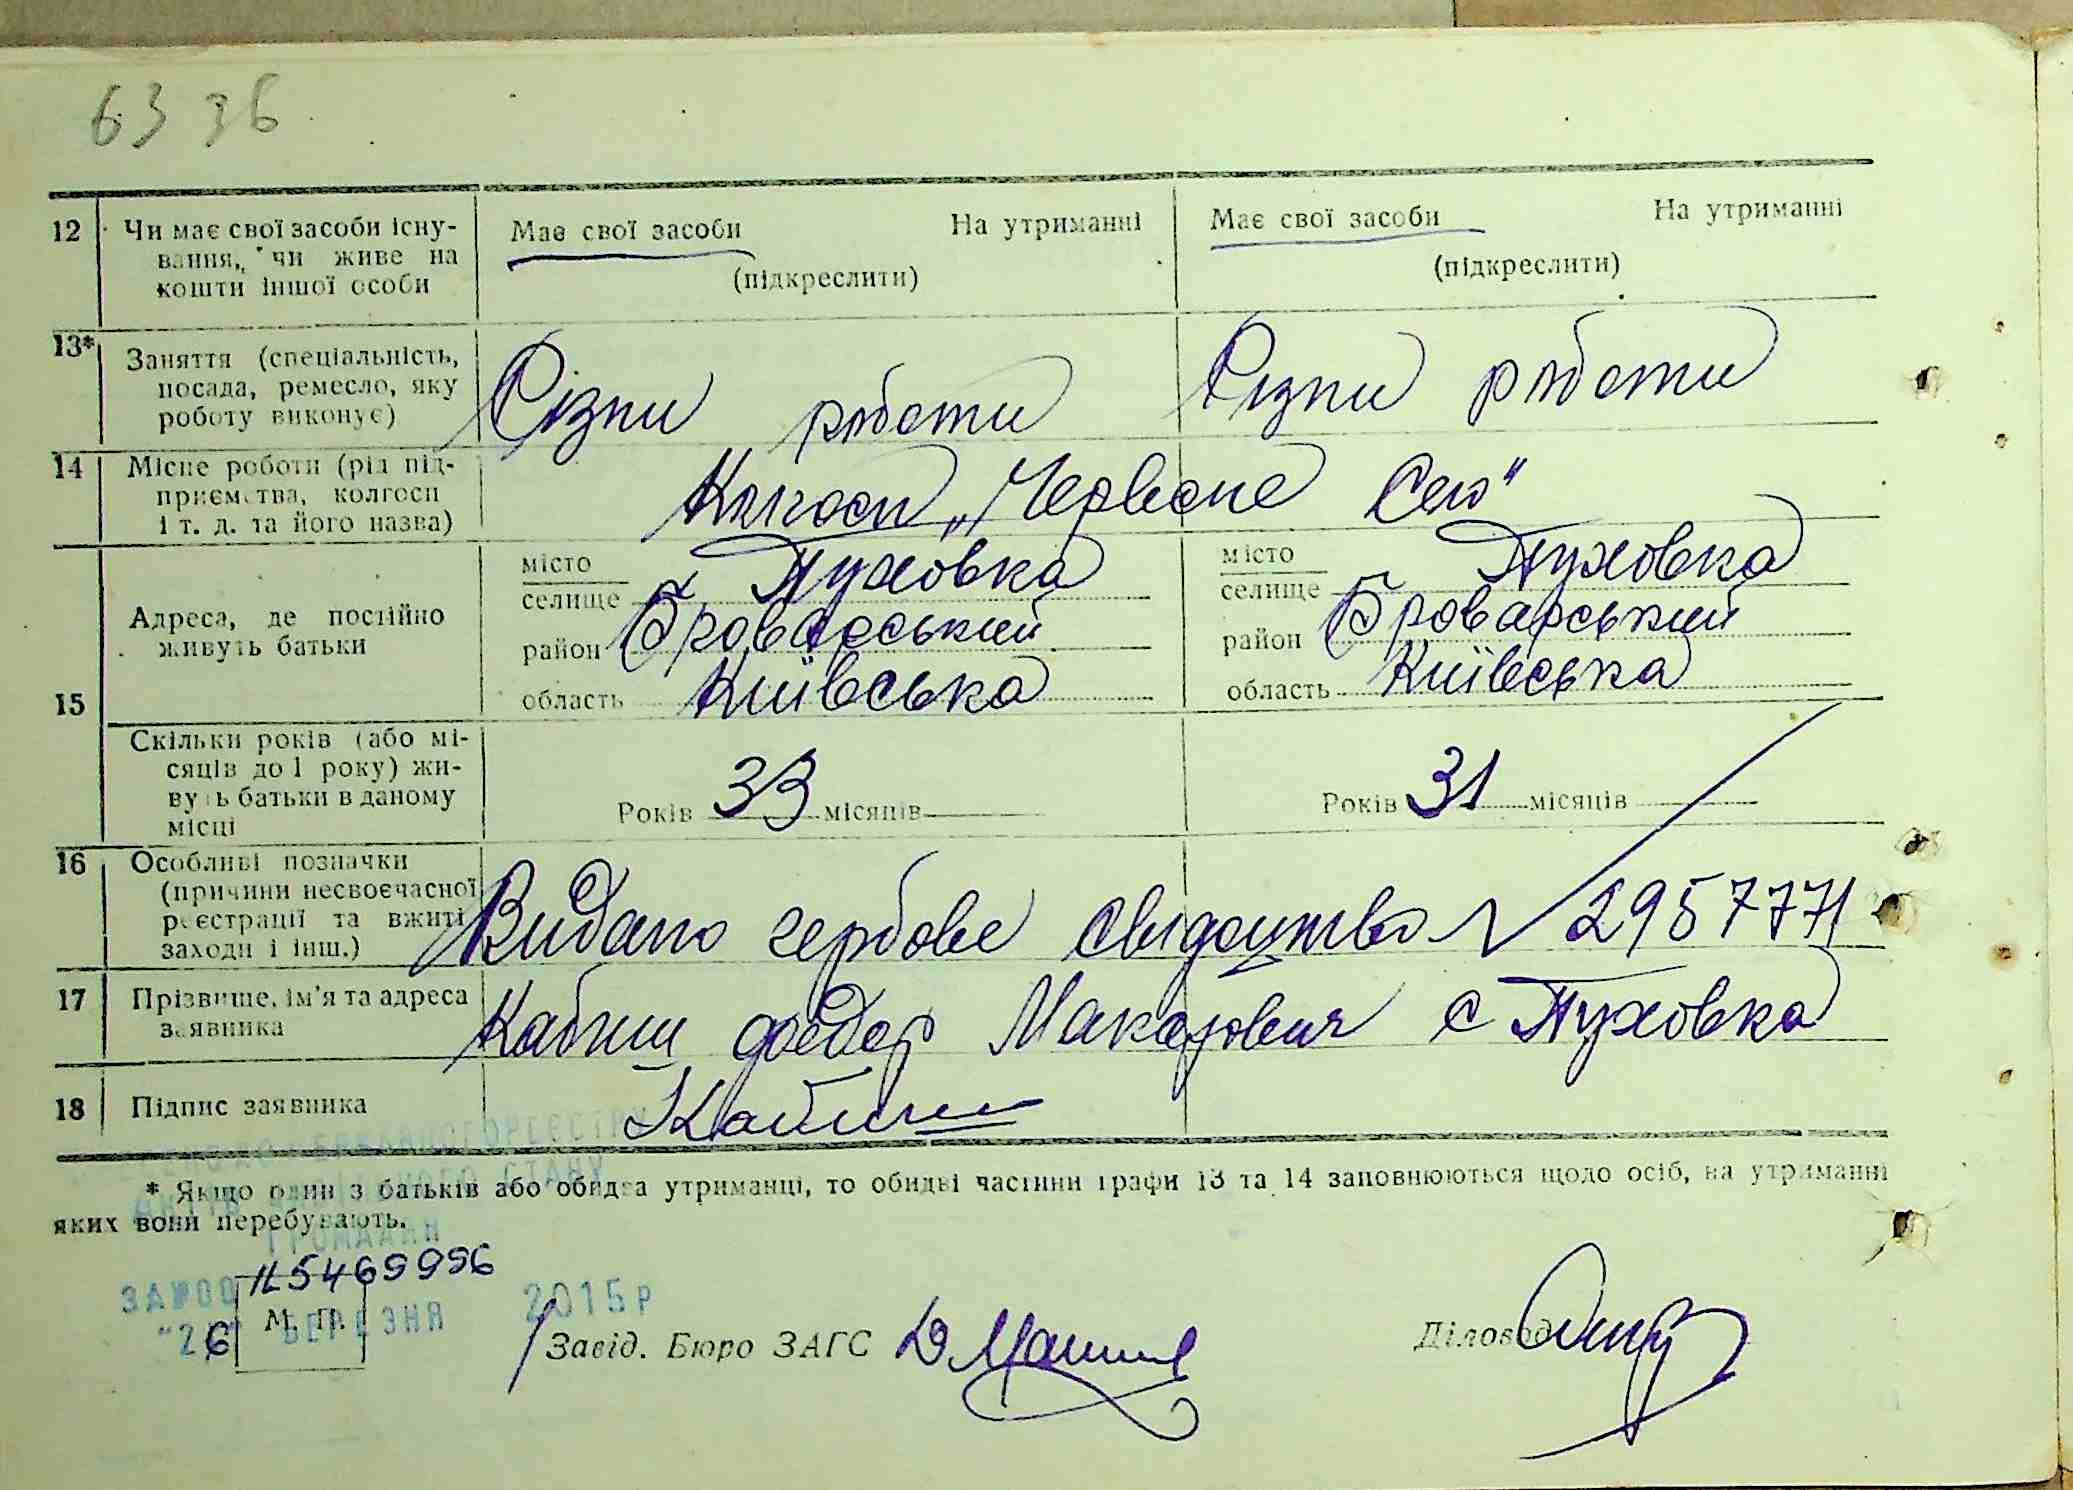 63 36
12
Чи має свої засоби існу-
вання, чи живе на
кошти іншої особи
Має свої засоби На утриманні
(підкреслити)
Має свої засоби На утриманні
(підкреслити)
13*
Заняття (спеціальність,
посада, ремесло, яку
роботу виконує)
Різни роботи
Різни роботи
14
Місце роботи (рід під-
приємства, колгосп
і т. д. та його назва)
Колгосп „Червоне Село"
15
Адреса, де постійно
живуть батьки
місто
селище Пуховка
район Броварський
область Київська
місто
селище Пуховка
район Броварський
область Київська
Скільки років (або мі-
сяців до 1 року) жи-
вуть батьки в даному
місці
Років 33 місяців
Років 31 місяців
16
Особливі позначки
(причини несвоєчасної
реєстрації та вжиті
заходи і інш.)
Видано гербове свідоцтво № 2957771
17
Прізвище, ім'я та адреса
заявника
Федор Макарович с Пуховка
18
Підпис заявника
* Якщо один з батьків або обидва утриманці, то обидві частини графи 13 та 14 заповнюються щодо осіб, на утриманні
яких вони перебувають.
ГРОМАДЯН
5469996
"26" БЕРЕЗНЯ 2015 р
М. П.
Завід. Бюро ЗАГС
Діловод